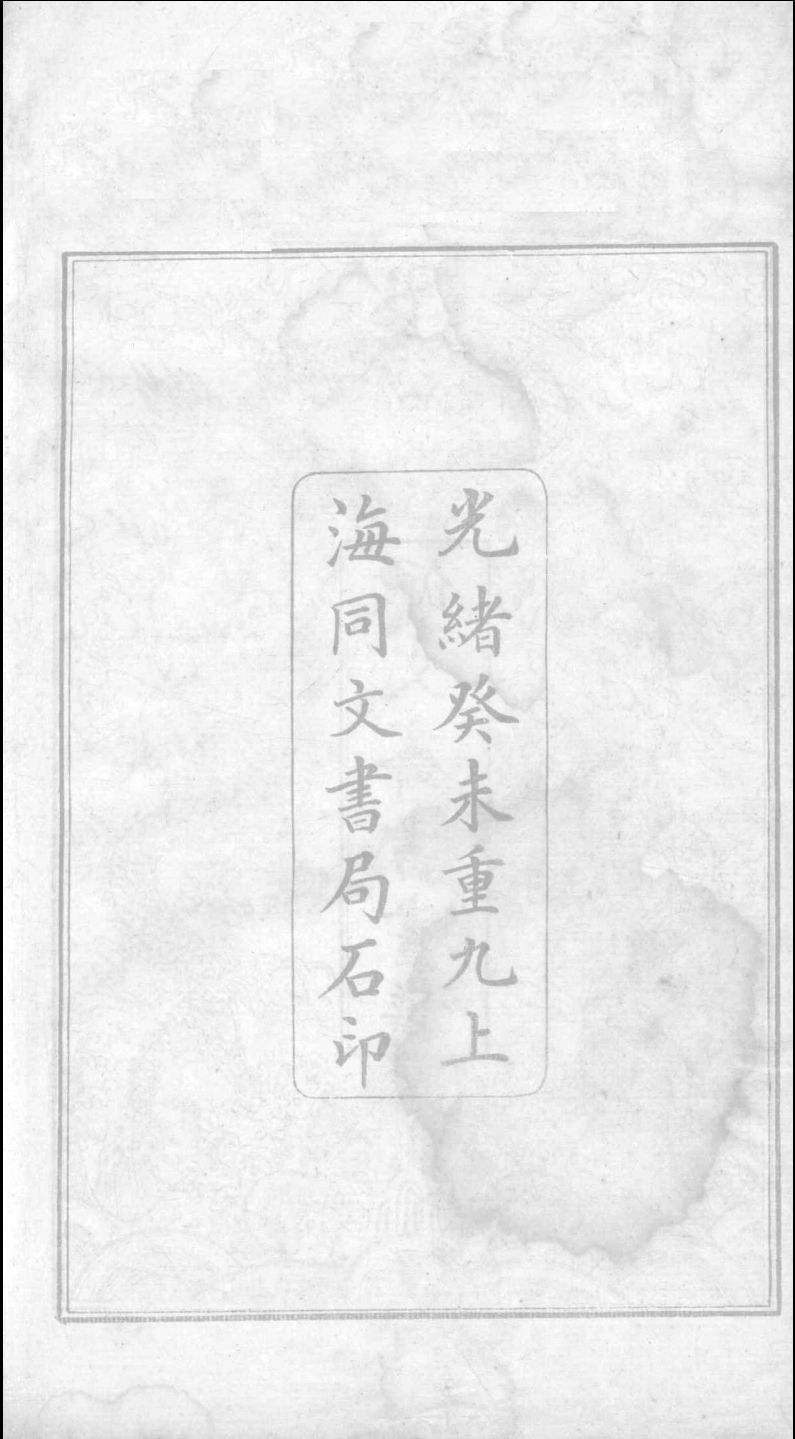 光緒癸未重九上
海同文書局石印